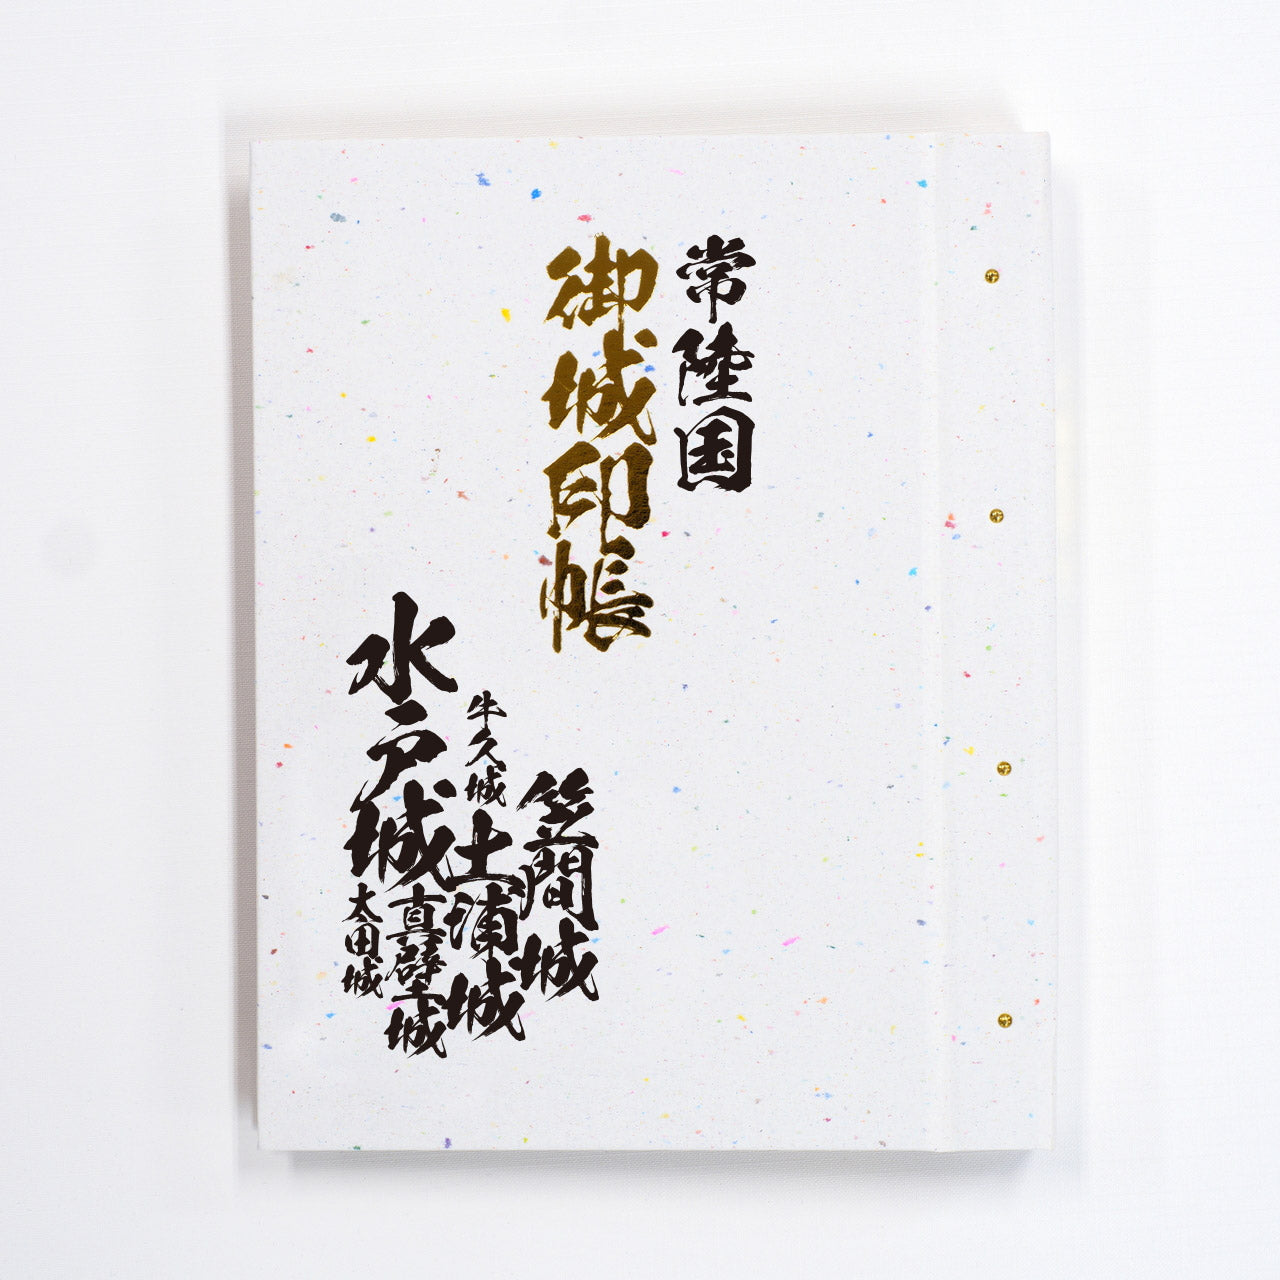 常陸国
御城印帳
笠間城
牛久城
土浦城
水戸城
真壁城
太田城